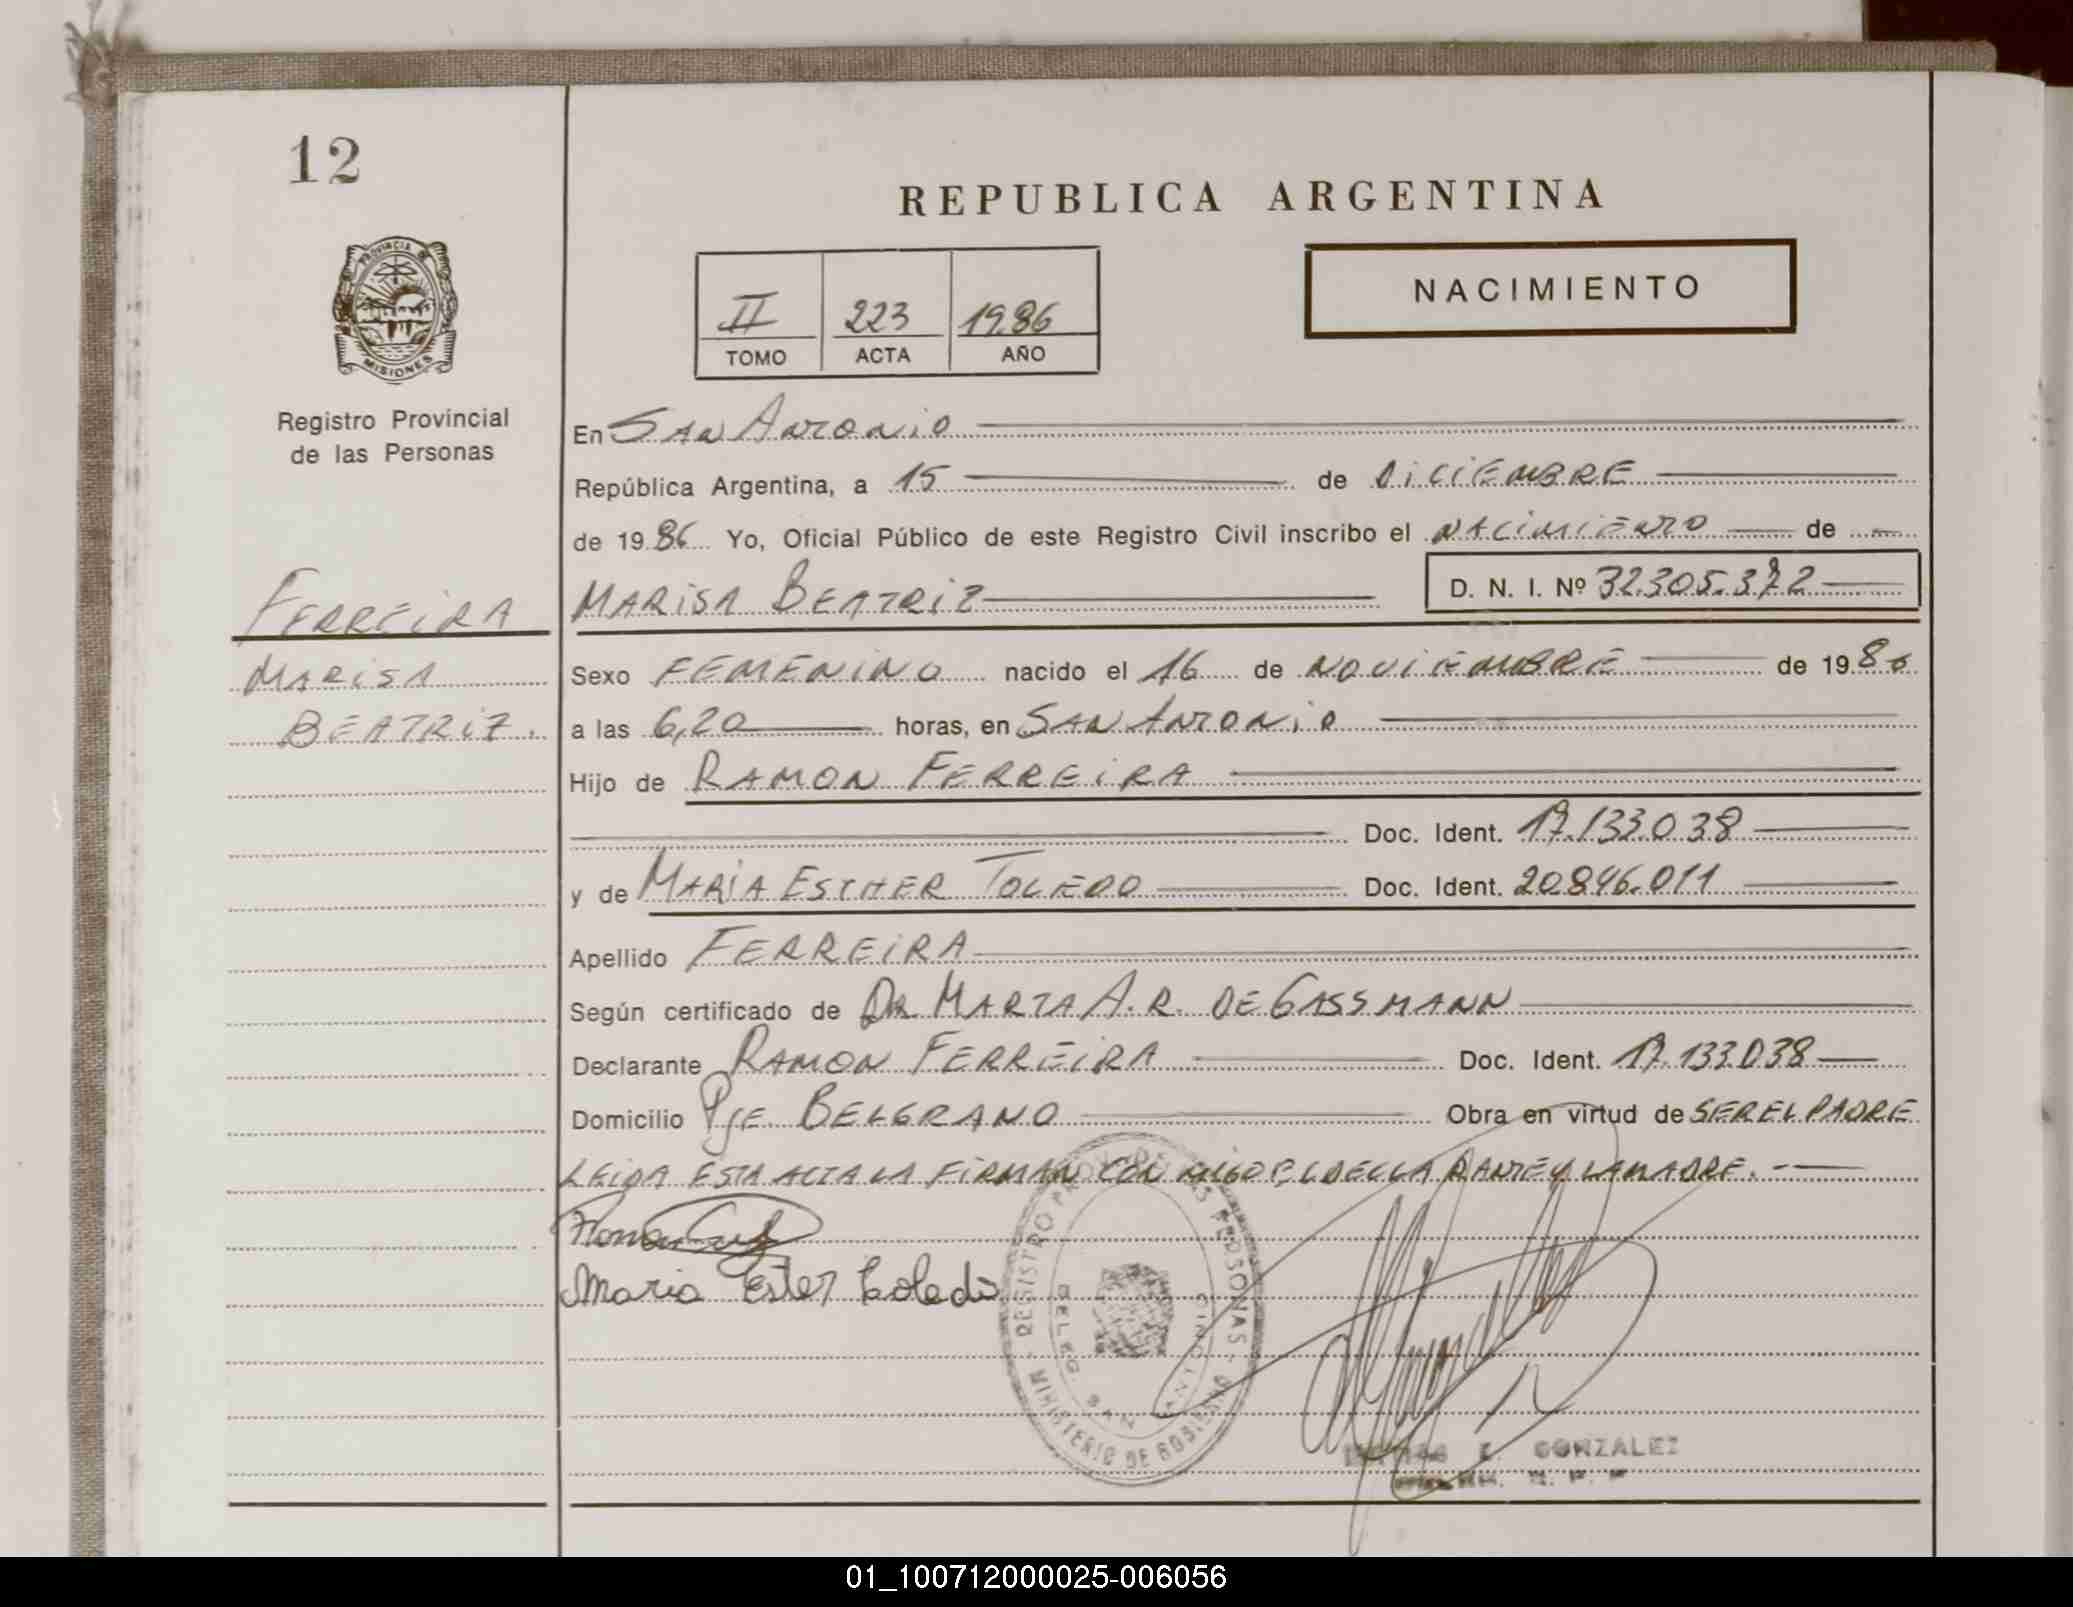 12
REPUBLICA ARGENTINA
NACIMIENTO
II 223 1986
TOMO ACTA AÑO
PROVINCIA DE
MISIONES
Registro Provincial
de las Personas
En San Antonio
República Argentina, a 15 de Diciembre
de 1986 Yo, Oficial Público de este Registro Civil inscribo el nacimiento de
Ferreira
Marisa Beatriz D. N. I. Nº 32.305.372
Marisa
Sexo Femenino nacido el 16 de noviembre de 1986
Beatriz.
a las 6,20 horas, en San Antonio
Hijo de Ramon Ferreira
Doc. Ident. 17.133.038
y de Maria Esther Toledo Doc. Ident. 20.846.011
Apellido Ferreira
Según certificado de Dra Marta A. R. de Gassmann
Declarante Ramon Ferreira Doc. Ident. 17.133.038
Domicilio Pje Belgrano Obra en virtud de ser el padre
Leida esta acta la firman conmigo el declarante y la madre.
Maria Ester Toledo
REGISTRO PROV. DE LAS PERSONAS - MINISTERIO DE GOBIERNO
DELEG. SAN ANTONIO
E. GONZALEZ
01_100712000025-006056